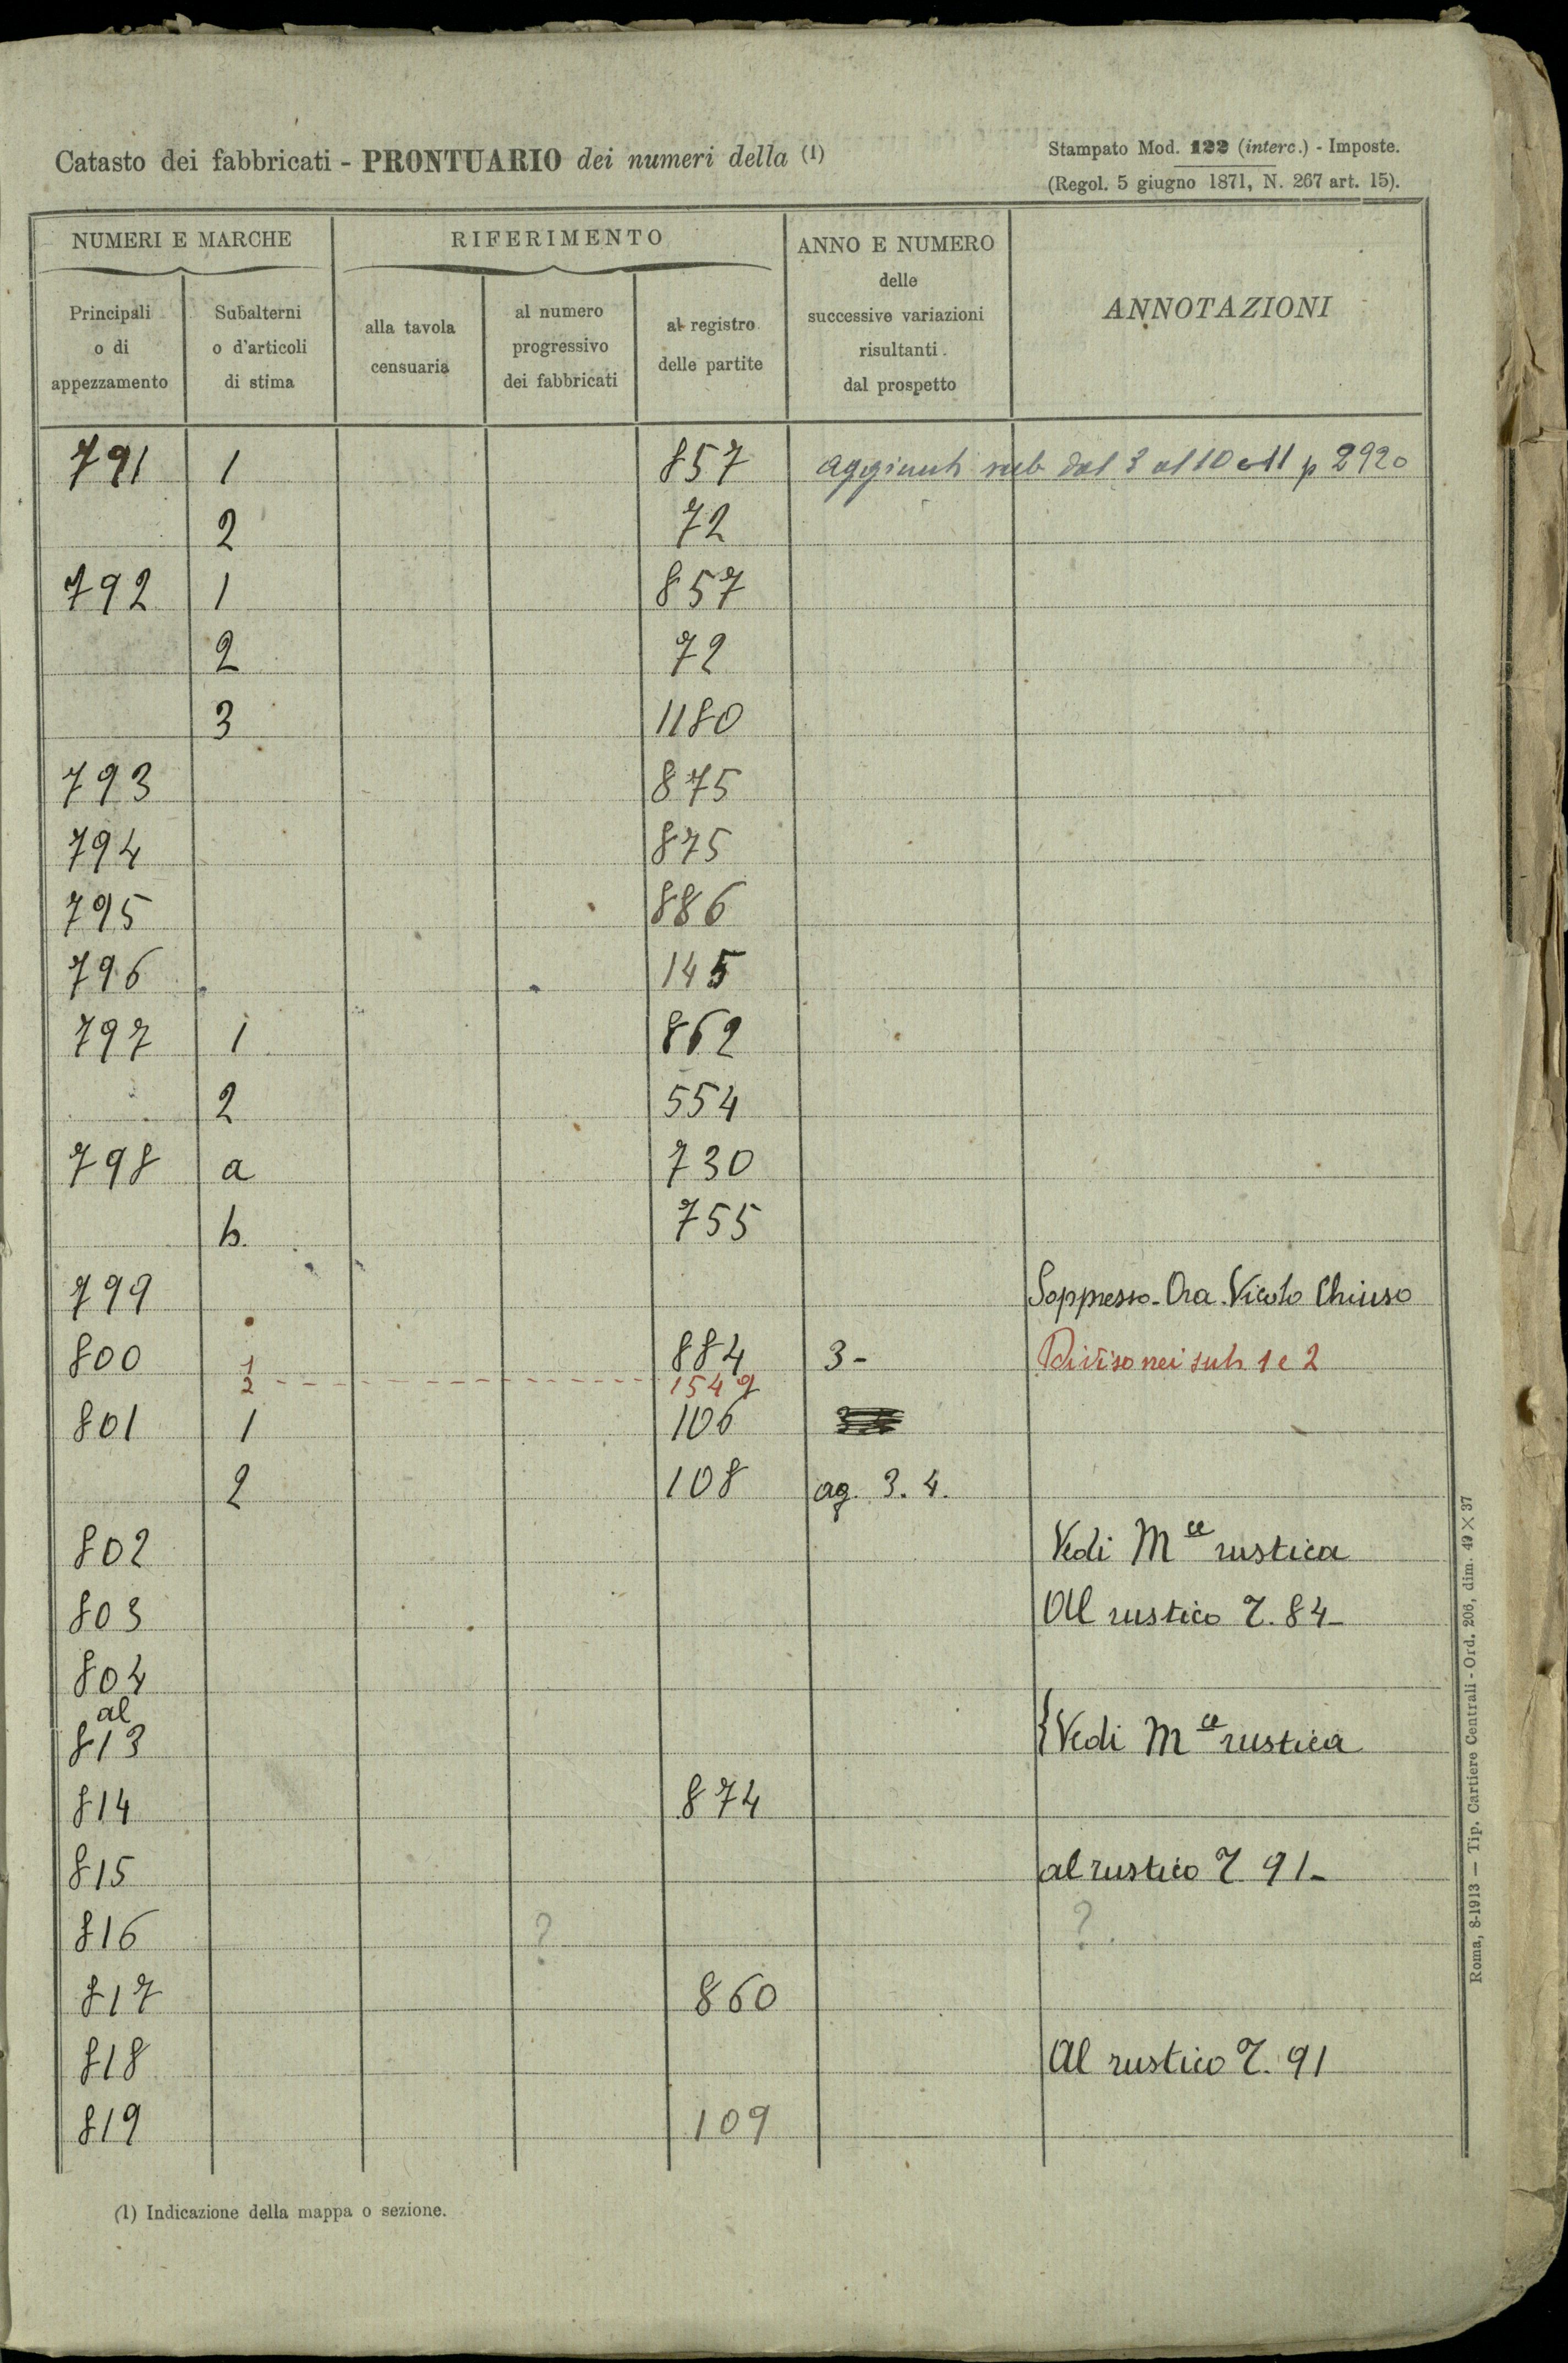 Catasto dei fabbricati - PRONTUARIO dei numeri della (1)
Stampato Mod. 122 (interc.) - Imposte.
(Regol. 5 giugno 1871, N. 267 art. 15).
NUMERI E MARCHE
RIFERIMENTO
ANNO E NUMERO
delle
successive variazioni
risultanti
dal prospetto
ANNOTAZIONI
Principali
o di
appezzamento
Subalterni
o d'articoli
di stima
alla tavola
censuaria
al numero
progressivo
dei fabbricati
al registro
delle partite
791 1 857 aggiunti sub dal 3 al 10 e 11 p 2920
2 72
792 1 857
2 72
3 1180
793 875
794 875
795 886
796 145
797 1 862
2 554
798 a 730
b. 755
799 Soppresso - Ora Vicolo Chiuso
800 1 884 3- Diviso nei sub 1 e 2
2 1549
801 1 106
2 108 ag. 3. 4.
802 Vedi Mce rustica
803 Al rustico T. 84-
804
al
813 {Vedi Mce rustica
814 874
815 al rustico T 91-
816 ? ?
817 860
818 Al rustico T. 91
819 109
(1) Indicazione della mappa o sezione.
Roma, 8-1913 — Tip. Cartiere Centrali - Ord. 206, dim. 49 × 37